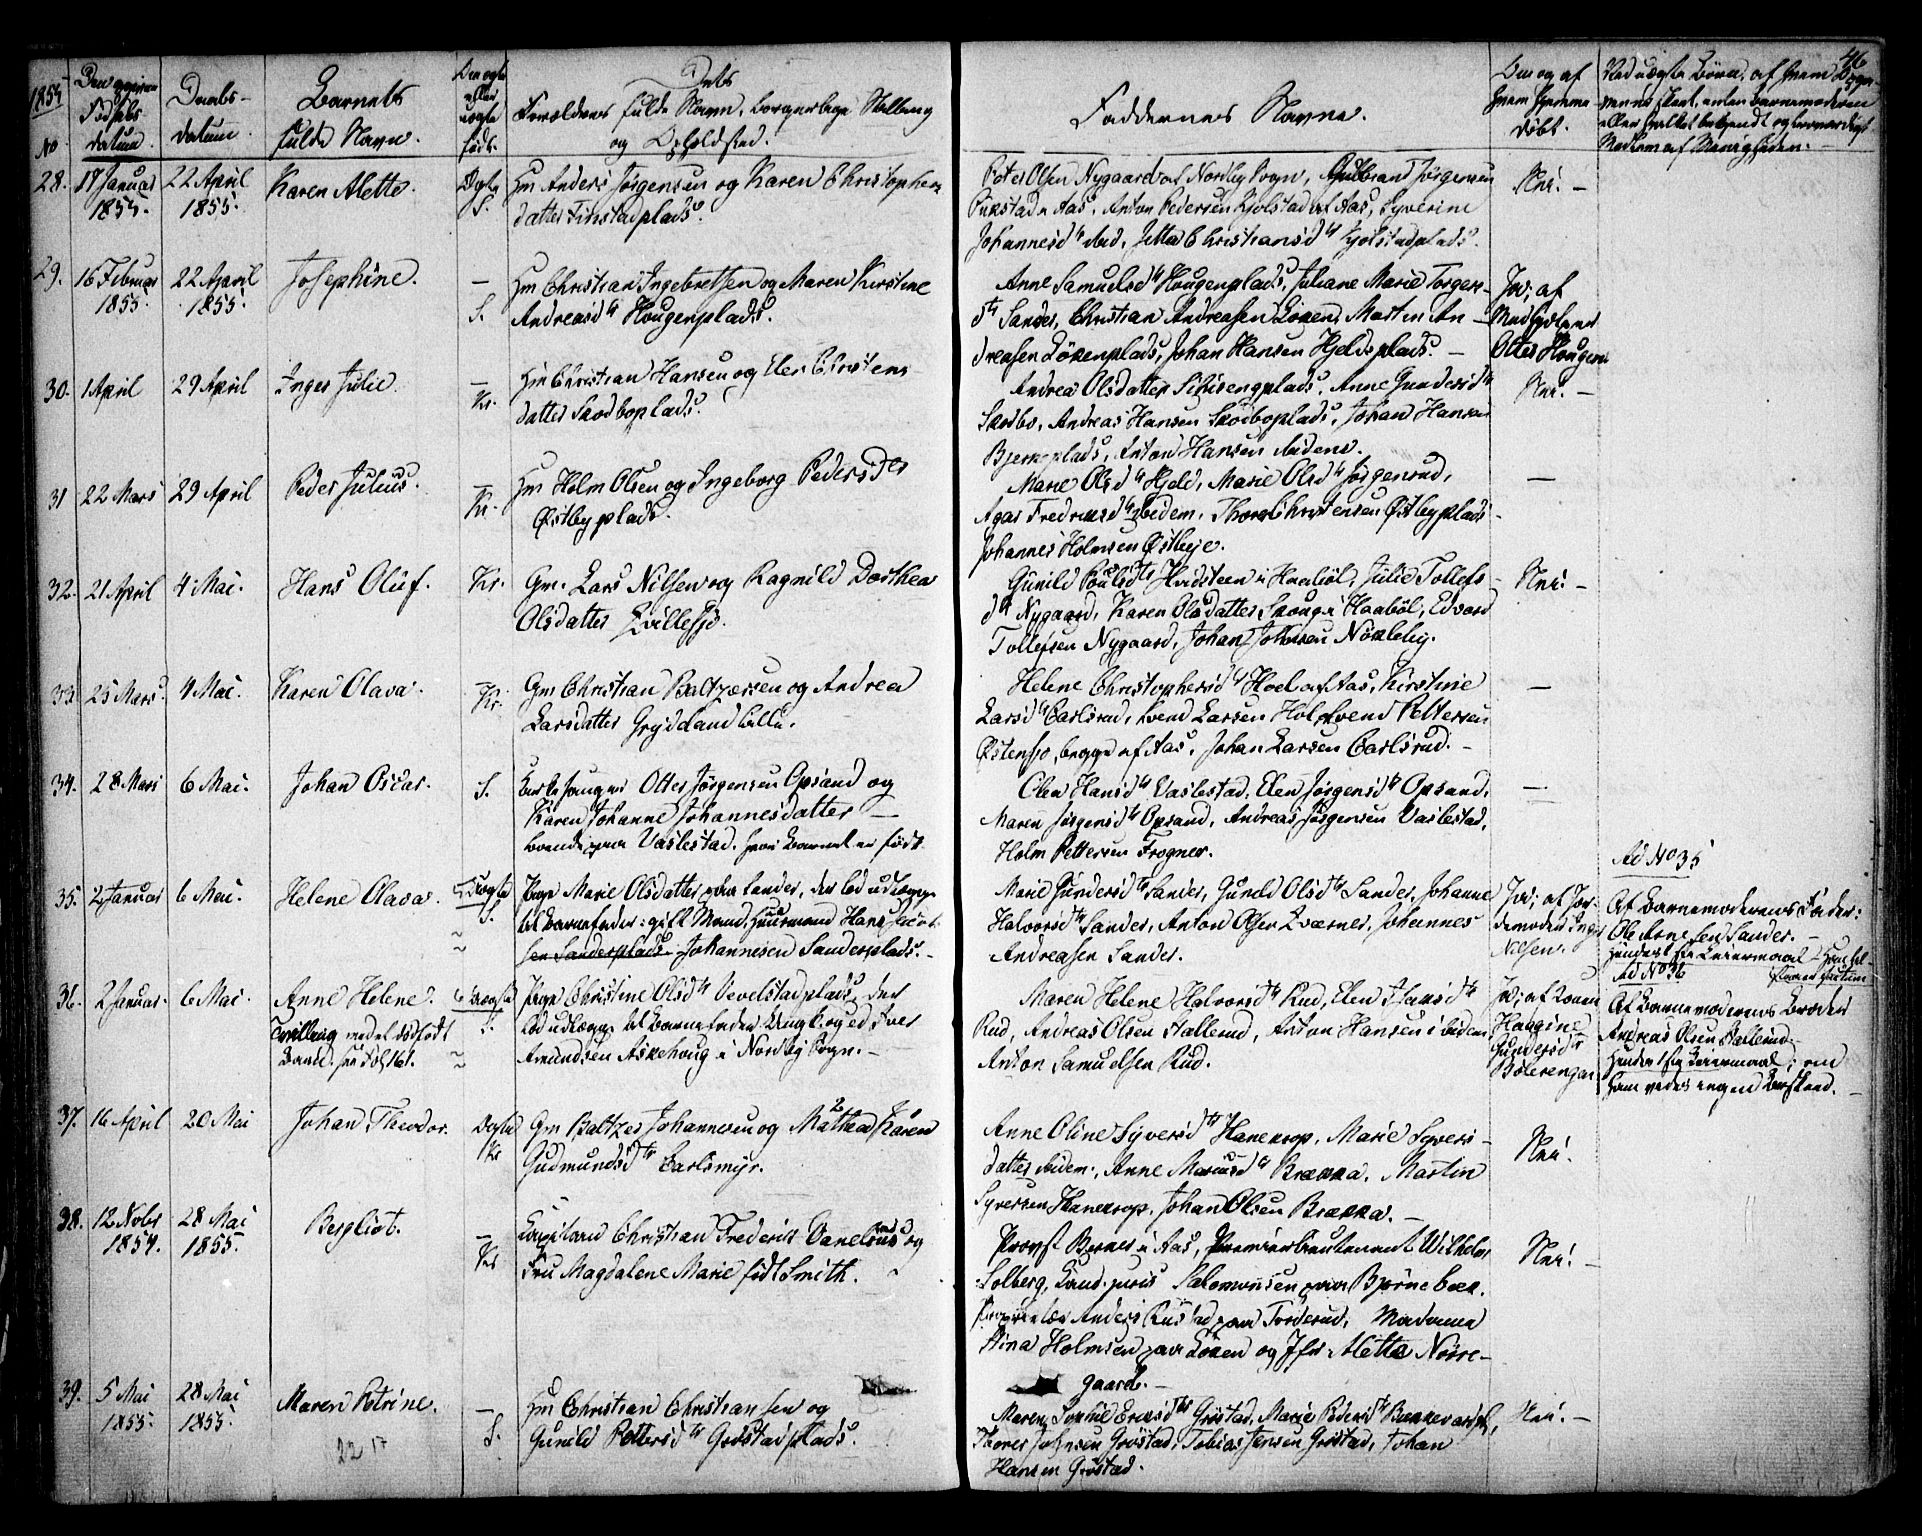 46
1855
No
Fødsels datum.
Daabs-
datum.
Barnets
fulde Navn.
Om ægte eller uægte født.
Dets
Forældres fulde Navn, borgerlige Stilling
og Opholdssted.
Faddernes Navne.
Om og af hvem hjemmedøbt.
28. 17 Januar 1855. 22 April 1855. Karen Alette. Ægte S. Hm Anders Jørgensen og Karen Christophers-
datter Finstadplads.
Peter Olsen Nygaard af Nordby Sogn, Gulbrand Jørgensen
Aas, Anton Pedersen Kjølstad af Aas, Syverine
Johannesd tr ibid, Jitta Christiansd tr Kjølstadplads.
Nei. —
29. 16 Februar 1855. 22 April 1855. Josephine. — S. Hm Christian Ingebretsen og Maren Kirstine
Andreasd tr Hougenplads.
Anne Samuelsd tr Hougenplads, Juliane Marie Torgers-
d tr Sander, Christian Andreasen Løken, Martin An-
dreasen Løkenplads, Johan Hansen Hjeldsplads. —
Ja, af
Otter Hougen
30. 1 April 29 April Inger Julie. — Kr. Hm Christian Hansen og Elen Christens
datter Skodboplads.
Andrea Olsdatter, Anne Gundersd tr
Skodbo, Andreas Hansen Skodboplads, Johan Hansen
Bjerkeplads, Anton Hansen ibidem.
Nei. —
31 22 Mars 29 April Peder Julius. — Kr. Hm Holm Olsen og Ingeborg Pedersd tr
Østbyplads.
Marie Olsd tr Hjeld, Marie Olsd tr Jørgensrud,
Agar Fredriksd tr ibidem, Thore Christensen Østbyplads
Johannes Holmsen Østbye.
—
32. 21 April 4 Mai. Hans Oluf. Kr. Gm. Lars Nilsen og Ragnild Dorthea
Olsdatter Qvillesjø.
Gunild Poulsd tr Hvidsteen i Haabøl, Julie Tollefs-
d tr Nygaard, Karen Olsdatter Skoug i Haabøl, Edvard
Tollefsen Nygaard, Johan Johnsen Nøkleby.
Nei. —
33 25 Mars 4 Mai. Karen Olava. — Kr. Gm Christian Baltzersen og Andrea
Larsdatter Gryddand lille.
Helene Christophersd tr Hoel af Aas, Kirstine
Larsd tr Carlsrud, Svend Larsen Hol, Svend Pettersen
Østensjø, begge af Aas, Johan Larsen Carlsrud. —
—
34. 28 Mars 6 Mai. Johan Oscar. S. Kirkesanger Otter Jørgensen Opsand og
Karen Johanne Johannesdatter —
boende paa Vaslestad, hvor Barnet er født.
Olea Hansd tr Vaslestad, Elen Jørgensd tr Opsand,
Maren Jørgensd tr Opsand, Andreas Jørgensen Vaslestad,
Holm Pettersen Frogner.
—
35. 2 Januar 6 Mai. Helene Olava. Uægte S. Pige Marie Olsdatter paa Sander, der lod udlægge
til Barnefader: gift Mand, Huusmand Hans
sen Sanderplads. Johannesen Sanderplads. —
Marie Gundersd tr Sander, Gunild Olsd tr Sander, Johanne
Halvorsd tr Sander, Anton Olsen Kværner, Johannes
Andreasen Sander.
Ja; af Jor-
demoder Inger
Nilsen.
Ad No 35
Af Barnemoderens Fader:
Ole Arnesen Sander. —
Hendes 1ste Leiermaal
36. 2 Januar. 6 Mai. Anne Helene.
Tvilling med et dødfødt
Barn.
Uægte S. Pige Christine Olsd tr Vevelstadplads, der
lod udlægge til Barnefader Ungk. og ed. Iver
Amundsen Askehoug i Nordby Sogn. —
Maren Helene Halvorsd tr Rud, Elen Hansd tr
Rud, Andreas Olsen Hallerud, Anton Hansen ibidem,
Anton Samuelsen Rud.
Ja; af Konen
Haagine
Gundersd tr
Bølerengen
Ad No 36
Af Barnemoderens Broder
Andreas Olsen Hallerud —
Hendes 1ste Leiermaal; om
ham vides ingen Besked. —
37. 16 April 20 Mai Johan Theodor. Ægte Kr Gm Baltzer Johannesen og Mathea Karen
Gudmundsd tr Carlsmyr.
Anne Oline Syversd tr Hanekrop, Marie Syvers-
datter ibidem, Anne Mariusd tr Brækka, Martin
Syversen Hanekrop, Johan Olsen Brækka. —
Nei.
38. 12 Nobr 1854. 28 Mai 1855. Bergliot. — Kr Christian Frederik Danelius og
Fru Magdalene Marie født Smith.
Provst Berner i Aas, Premierlieutenant Wilhelm
Solberg, Cand. juris Salomonsen paa Bjørnebæk.
Anders Rustad paa Forderud, Madamme
Stina Holmsen paa Løken og Jfr. Mette Nørre-
gaard. —
Nei. —
39. 5 Mai 1855. 28 Mai 1855. Maren Petrine. — S. Hm Christian Christiansen og
Gunild Pettersd tr Grøstadplads.
Maren Sophie Ericsd tr Grøstad, Marie Pedersd tr
Thorer Johnsen Grøstad, Tobias Jensen Grøstad, Johan
Hansen Grøstad.
Nei. —
22 17